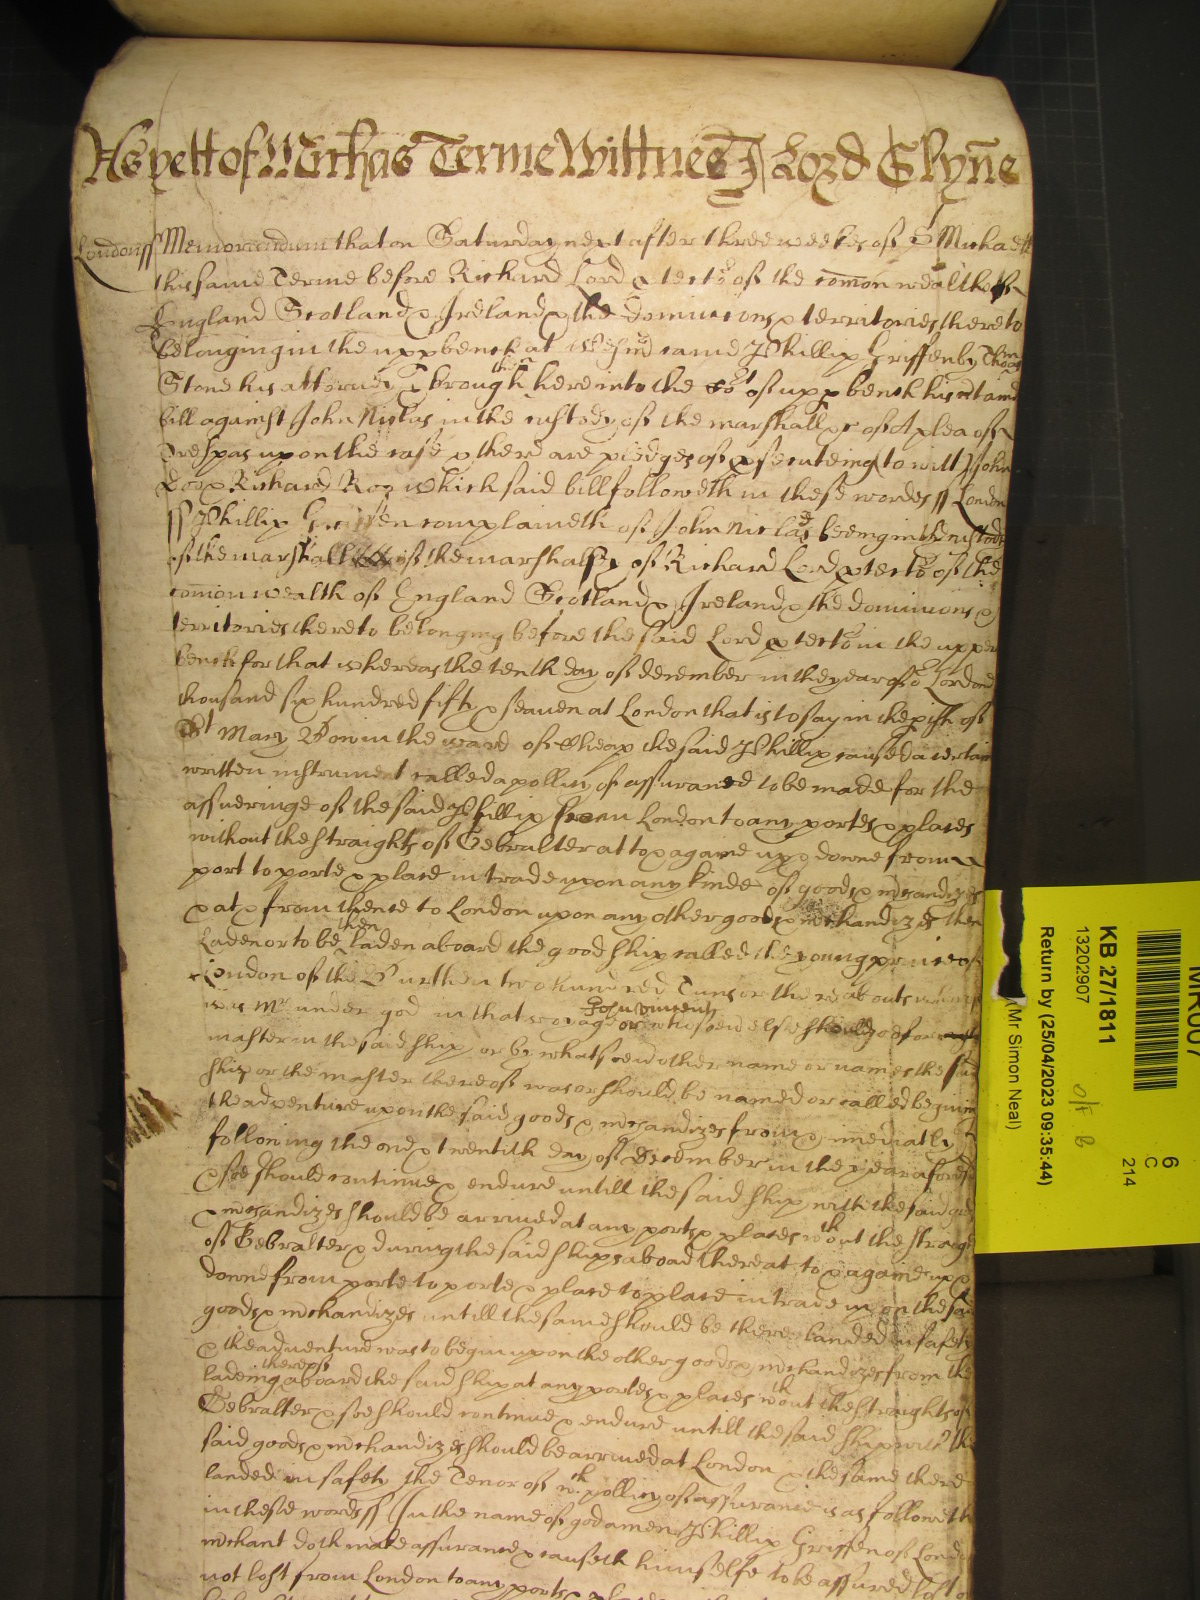 As yett of Michas Terme Wittnes J Lord Glynne
London ss Memorandum that on Saturday next after three weekes of St Michaell
this same Terme before Richard Lord ptector of the comon wealth of
England Scotland & Ireland & the dominions & territories thereto
belonging in the upp bench at Westmr came Phillip Griffen by Thomas
Stone his attorney & brought then here into the Cort of upp bench his certaine
bill against John Niclas in the custody of the marshall &c of A plea of
Trespas upon the case & there are pledges of psecuteing to witt John
Doo & Richard Roo which said bill followeth in these wordes ss London
ss Phillip Griffen complaineth of John Niclas beeing in the custody
of the marshall of the marshalsey of Richard Lord ptector of the
comon wealth of England Scotland & Ireland & the dominions &
territories thereto belonging before the said Lord ptector in the upper
bench for that whereas the tenth day of december in the yeare of or Lord one
thousand six hundred fifty & seaven at London that is to say in the pish of
St Mary Bow in the ward of Cheap the said Phillip caused a certain
written instrument called a pollicy of assurance to be made for the
assueringe of the said Phillip from London to any portes & places
without the straights of Gebralter at to & againe up & downe from
port to porte & place in trade upon any kinde of goods & mrchandizes
& at & from thence to London upon any other goods & mrchandizes then
Laden or to be then laden aboard the good ship called the young prince of
London of the Burthen two hundred Tuns or thereabouts whereof
was Mr under god in that voyage John Vincent or whosoeu else should goe for
master in the said ship or by whatsoeu other name or names the said
ship or the master thereof was or should be named or called begining
the adventure upon the said goods & mrchandizes from & imediatly
following the one & twentith day of december in the yeare aforesd
& soe should continue & endure untill the said ship with the said goods
& mrchandizes should be arrived at any ports & places wthout the straights
of Gebralter & during the said ships aboad there at to & againe up &
downe from porte to porte & place to place in trade upon the said
goods & mrchandizes untill the same should be there landed in safety
& the adventure was to begin upon the other goods & mrchandizes from the
ladeing thereof aboard the said ship at any portes & places wthout the straights of
Gebralter & soe should continue & endure untill the said ship with the
said goods & mrchandizes should be arrived at London & the same there
landed in safety the Tenor of wch pollicy of assurance is as followeth
in these words ss In the name of god amen Phillip Griffen of London
mrchant doth make assurance & causeth himselfe to be assured lost or
not lost from London to any ports & places
KB 27/1811
13202907
Return by (25/04/2023 09:35:44)
(Mr Simon Neal)
6
C
214
MR007